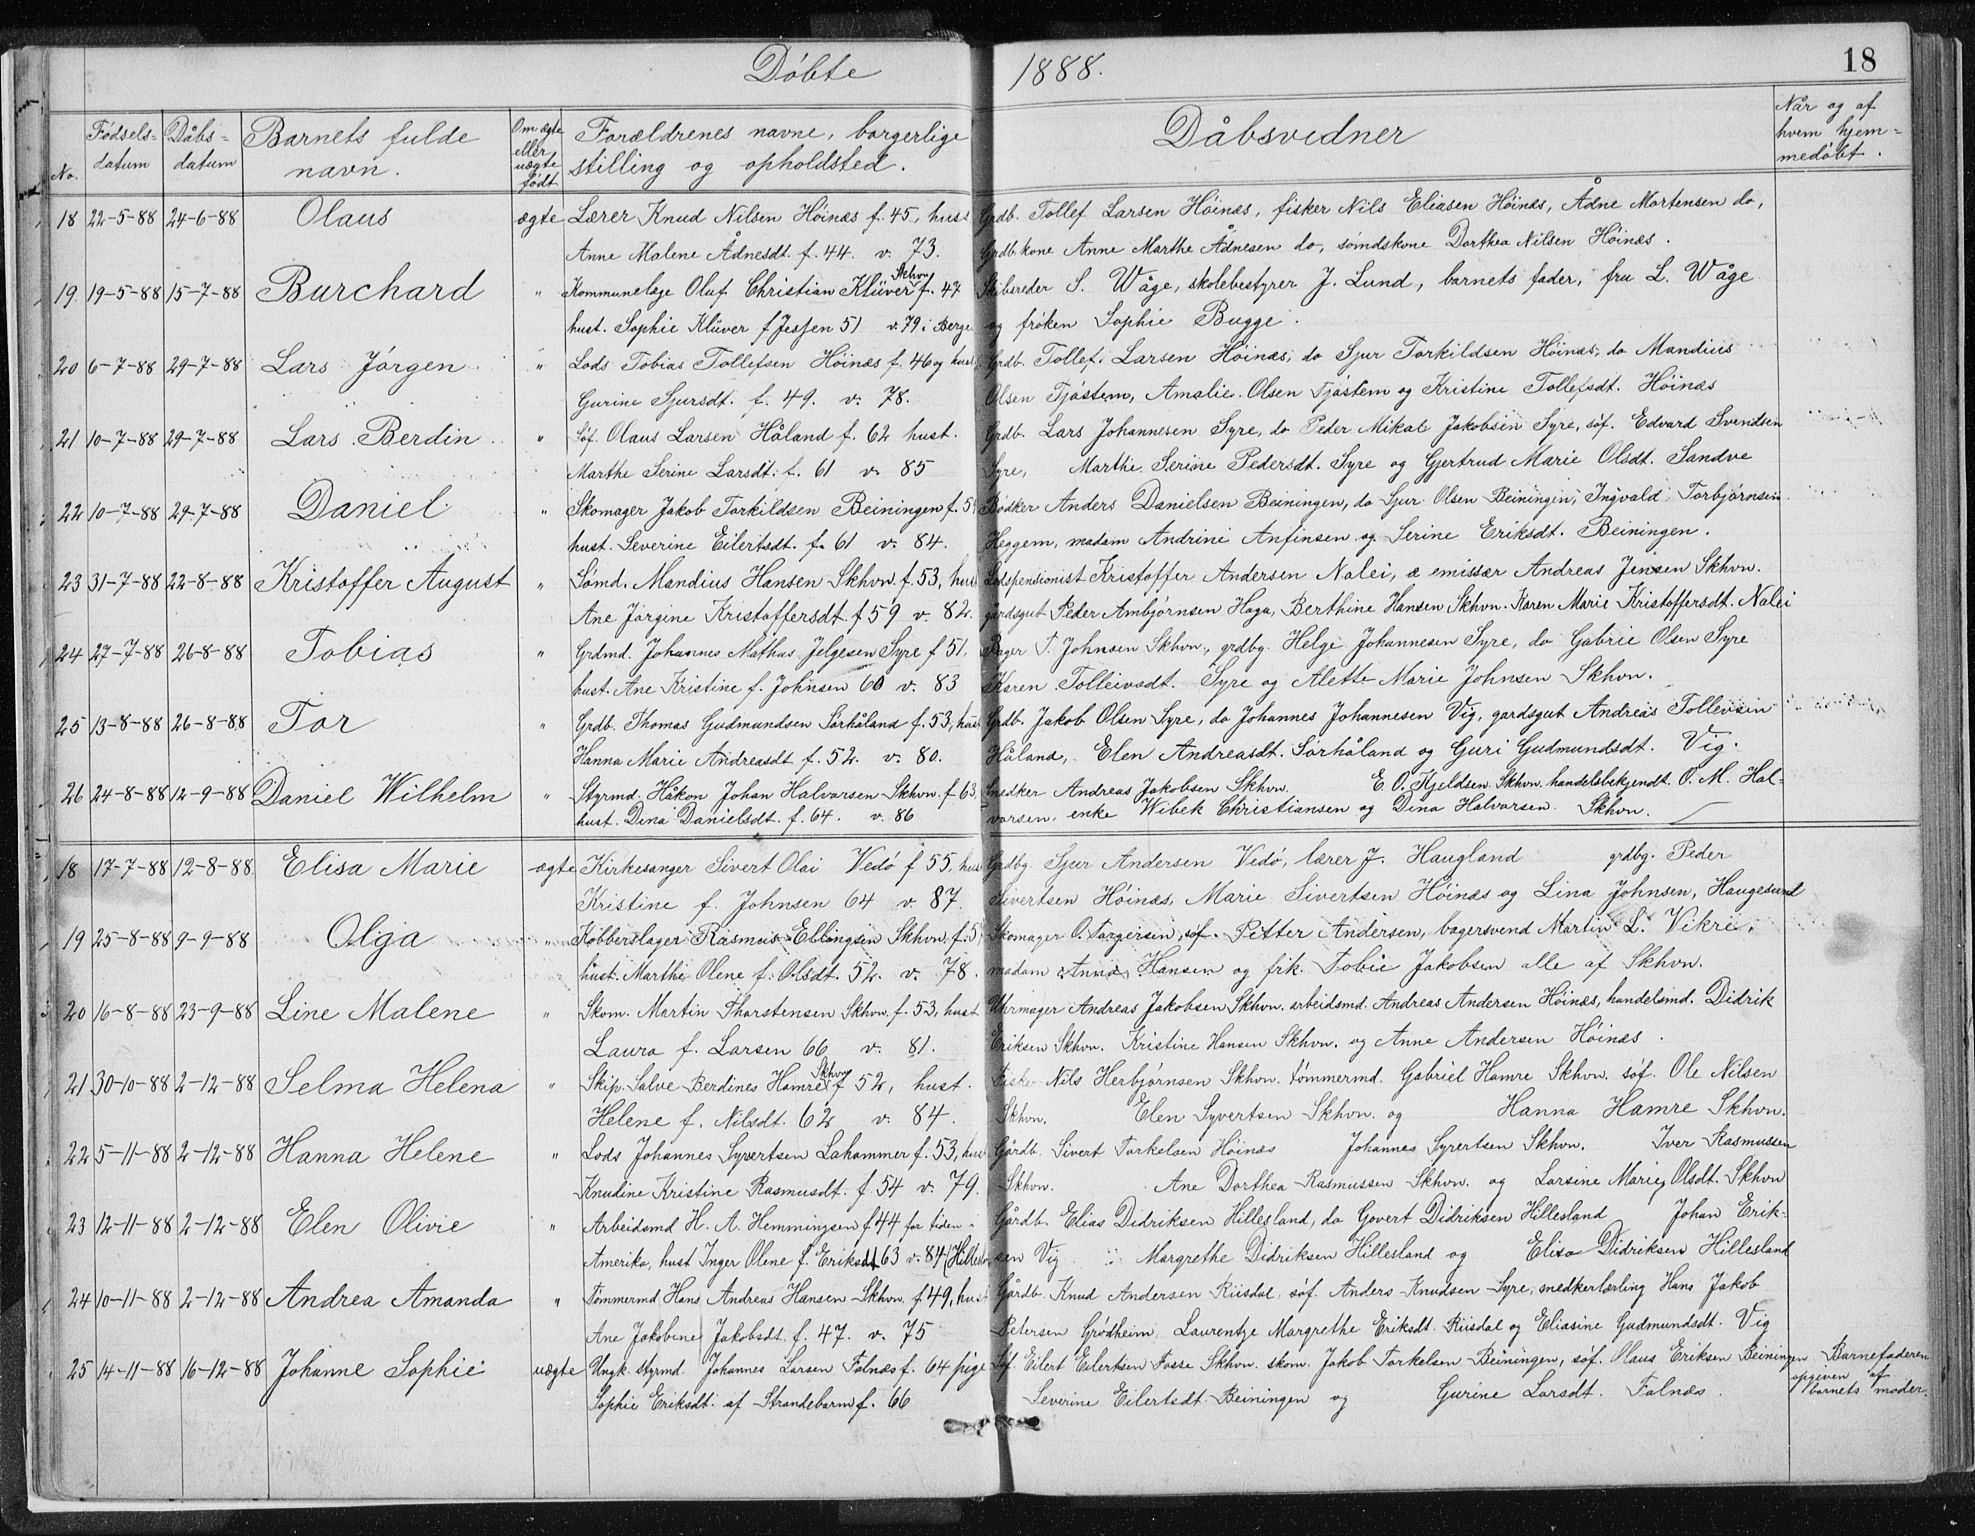 Döbte 1888. 18
No. Fødsels-datum Dåbs-datum Barnets fulde navn. Om ægte eller uægte født Forældrenes navne, borgerlige stilling og opholdsted. Dåbsvidner Når og af hvem hjem-medøbt.
18 22-5-88 24-6-88 Olaus ægte Lærer Knud Nilsen Höinæs f. 45, hust Grdb. Tollef Larsen Höinæs, fisker Nils Eliasen Höinæs, Ådne Mortensen do,
Anne Malene Ådnesdt. f. 44. v. 73. Grdb. kone Anne Marthe Ådnesen do, sømdskone Dorthea Nilsen Höinæs.
19. 19-5-88 15-7-88 Burchard " Kommunelæge Oluf Christian Klüver Skhvn f. 47 Skibsreder S. Wåge, skolebestyrer J. Lund, barnets fader, fru L. Wåge
hust. Sophie Klüver f Jessen 51 v. 79 i Berge og frøken Sophie Bugge.
20 6-7-88 29-7-88 Lars Jörgen " Lods Tobias Tollefsen Höinæs f. 46 og hust Grdb. Tollef Larsen Höinæs, do Sjur Torkildsen Höinæs, do Mandius
Gurine Sjursdt. f. 49. v. 78. Olsen Tjöstem, Amalie Olsen Tjöstem og Kristine Tollefsdt. Höinæs
21 10-7-88 29-7-88 Lars Berdin " Söf. Olaus Larsen Håland f. 62 hust. Grdb. Lars Johannesen Syre, do Peder Mikal Jakobsen Syre, söf. Edvard Svendsen
Marthe Serine Larsdt. f. 61 v. 85 Syre, Marthe Serine Pedersdt. Syre og Gjertrud Marie Olsdt. Sandve
22 10-7-88 29-7-88 Daniel " Skomager Jakob Torkildsen Beiningen f. 5 Bödker Anders Danielsen Beiningen, do Sjur Olsen Beiningen, Ingvald Torbjørnsen
hust. Severine Eilertsdt. f. 61 v. 84. Heggem, madam Andrine Anfinsen og Serine Eriksdt. Beiningen.
23 31-7-88 22-8-88 Kristoffer August " Sömd. Mandius Hansen Skhvn. f. 53, hus Lodspensionist Kristoffer Andersen Nalei, æ emissær Andreas Jensen Skhvn.
Ane Jörgine Kristoffersdt. f 59 v. 82. gårdsgut Peder Ambjørnsen Haga, Berthine Hansen Skhvn. Karen Marie Kristoffersdt. Nalei
24 27-7-88 26-8-88 Tobias " Grdmd. Johannes Mathias Helgesen Syre f 51, Bager T. Johnsen Skhvn., grdbg. Helge Johannesen Syre, do Gabrie Olsen Syre
hust. Ane Kristine f. Johnsen 60 v. 83 Karen Tolleivsdt. Syre og Alette Marie Johnsen Skhvn.
25 13-8-88 26-8-88 Tor " Grdb. Thomas Gudmundsen Sörhåland f. 53, hus Grdb. Jakob Olsen Syre, do Johannes Johannesen Vig, gardsgut Andreas Tollevsen
Hanna Marie Andreasdt f. 52. v. 80. Håland, Elen Andreasdt. Sörhåland og Guri Gudmundsdt. Vig.
26 24-8-88 12-9-88 Daniel Wilhelm " Styrmd. Håkon Johan Halvorsen Skhvn. f 63, Snedker Andreas Jakobsen Skhvn. E. O. Kjeldsen Skhvn. handelsbekjendt. O. M. Hal-
hust. Dina Danielsdt. f. 64. v. 86 vorsen, enke Wibek Christiansen og Dina Halvorsen Skhvn.
18 17-7-88 12-8-88. Elisa Marie ægte Kirkesanger Sivert Olai Vedö f 55, hus Grdbg Sjur Andersen Vedö, lærer J. Haugland grdbg. Peder
Kristine f. Johnsen 64 v. 87. Sivertsen Höinæs, Marie Sivertsen Höinæs og Lina Johnsen, Haugesund
19 25-8-88 9-9-88 Olga " Kobberslager Rasmus Ellingsen Skhvn. f. 5 Skomager O. Torgersen, söf. Petter Andersen, bagersvend Martin L. Vikre,
hust. Marthe Olene f. Olsdt. 52. v. 78. madam Anna Hansen og frk. Tobie Jakobsen alle af Skhvn.
20 16-8-88 23-9-88 Line Malene " Skom. Martin Thorstensen Skhvn. f. 53, hust Uhrmager Andreas Jakobsen Skhvn. arbeidsmd. Andreas Andersen Höinæs, handelsmd. Didrik
Laura f. Larsen 66 v. 81. Eriksen Skhvn. Kristine Hansen Skhvn. og Anne Andersen Höinæs.
21 30-10-88 2-12-88 Selma Helena " Skip. Salve Berdines Hamre Skhvn f 52, hust. Fisker Nils Herbjørnsen Skhvn. tömmermd. Gabriel Hamre Skhvn. söf. Ole Nilsen
Helene f. Nilsdt. 62 v. 84. Skhvn. Elen Syvertsen Skhvn. og Hanna Hamre Skhvn.
22 5-11-88 2-12-88 Hanna Helene " Lods Johannes Syvertsen Lahammer f. 53, hus Gårdb. Sivert Torkelsen Höinæs Johannes Syvertsen Skhvn. Iver Rasmussen
Knudine Kristine Rasmusdt. f. 54 v. 79. Skhvn. Ane Dorthea Rasmussen Skhvn. og Larsine Marie Olsdt. Skhvn
23 12-11-88 2-12-88 Elen Olivie " Arbeidsmd H. A. Hemmingsen f 44 for tiden i Gårdb. Elias Didriksen Hillesland, do Govert Didriksen Hillesland Johan Erik-
Amerika, hust Inger Olene f. Eriksdt 63 v. 84 (Hillesl sen Vig Margrethe Didriksen Hillesland og Elisa Didriksen Hillesland
24 10-11-88 2-12-88 Andrea Amanda " Tömmermd Hans Andreas Hansen Skhvn. f 49, hust Gårdb. Knud Andersen Riisdal, söf. Anders Knudsen Syre, snedkerlærling Hans Jakob
Ane Jakobine Jakobsdt. f. 47. v. 75 Petersen Grødheim, Laurentze Margrethe Eriksdt. Riisdal og Eliasine Gudmundsdt. Vig
25 14-11-88 16-12-88 Johanne Sophie uægte Ungk. styrmd. Johannes Larsen Falnæs f. 64 pige Söf. Eilert Eilertsen Fosse Skhvn. skom. Jakob Torkelsen Beiningen, söf. Olaus Eriksen Beiningen Barnefaderen
Sophie Eriksdt. af Strandebarm f. 66 Severine Eilertsdt Beiningen og Gurine Larsdt. Falnæs. opgiven af barnets moder.